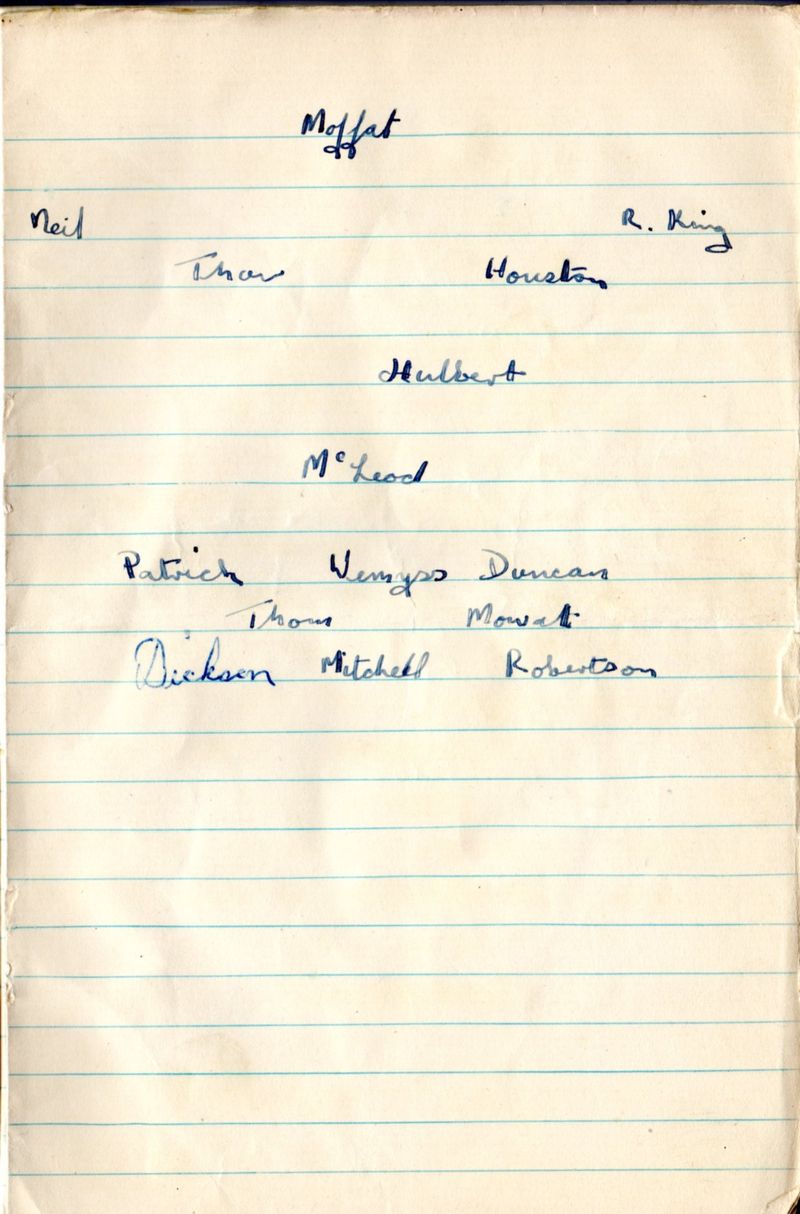 Moffat
Neil R. King
Thow Houston
Hulbert
McLeod
Patrick Wemyss Duncan
Thom Mowatt
Dickson Mitchell Robertson